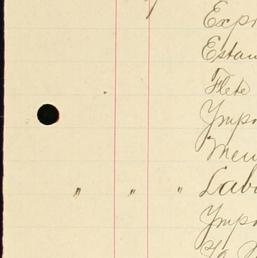 Expr
Estan
Flete
Ympr
Men
" " " Lab
Ympr